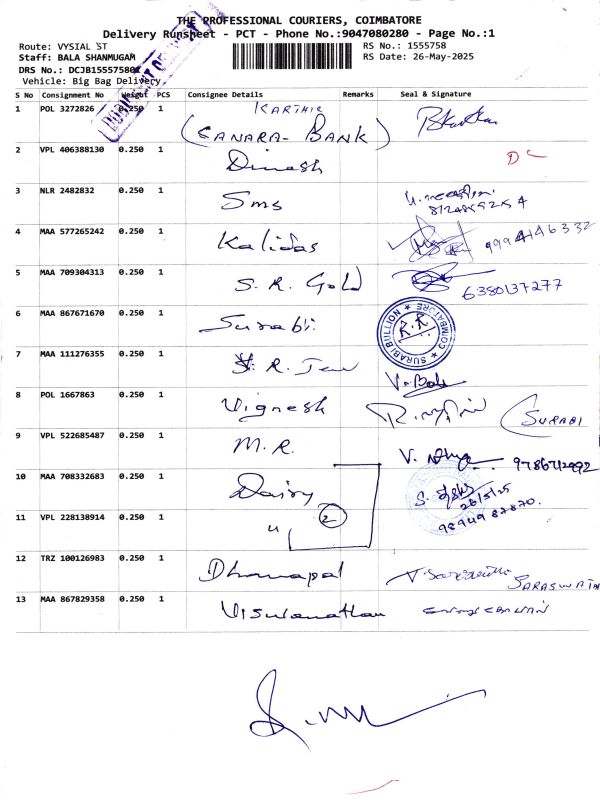 THE PROFESSIONAL COURIERS, COIMBATORE
Delivery Runsheet - PCT - Phone No.:9047080280 - Page No.:1
Route: VYSIAL ST
RS No.: 1555758
Staff: BALA SHANMUGAM
RS Date: 26-May-2025
DRS No.: DCJB15557580
Vehicle: Big Bag Delivery
S No Consignment No Weight PCS Consignee Details Remarks Seal & Signature
1 POL 3272826 0.250 1 KARTHIK
(CANARA- BANK)
2 VPL 406388130 0.250 1 Dinesh
3 NLR 2482832 0.250 1 Sms
4 MAA 577265242 0.250 1 Kalidas 9994146332
5 MAA 709304313 0.250 1 S. R. Gold 6380137277
6 MAA 867671670 0.250 1 Surabi SURABI BULLION COIMBATORE R.R
7 MAA 111276355 0.250 1 S. R. Jew V. Bala
8 POL 1667863 0.250 1 Vignesh (SURABI
9 VPL 522685487 0.250 1 M. R.
10 MAA 708332683 0.250 1 Dairy 26/5/25
11 VPL 228138914 0.250 1 " 2
12 TRZ 100126983 0.250 1 Dhanapal SARASWATHI
13 MAA 867829358 0.250 1 Viswanathan